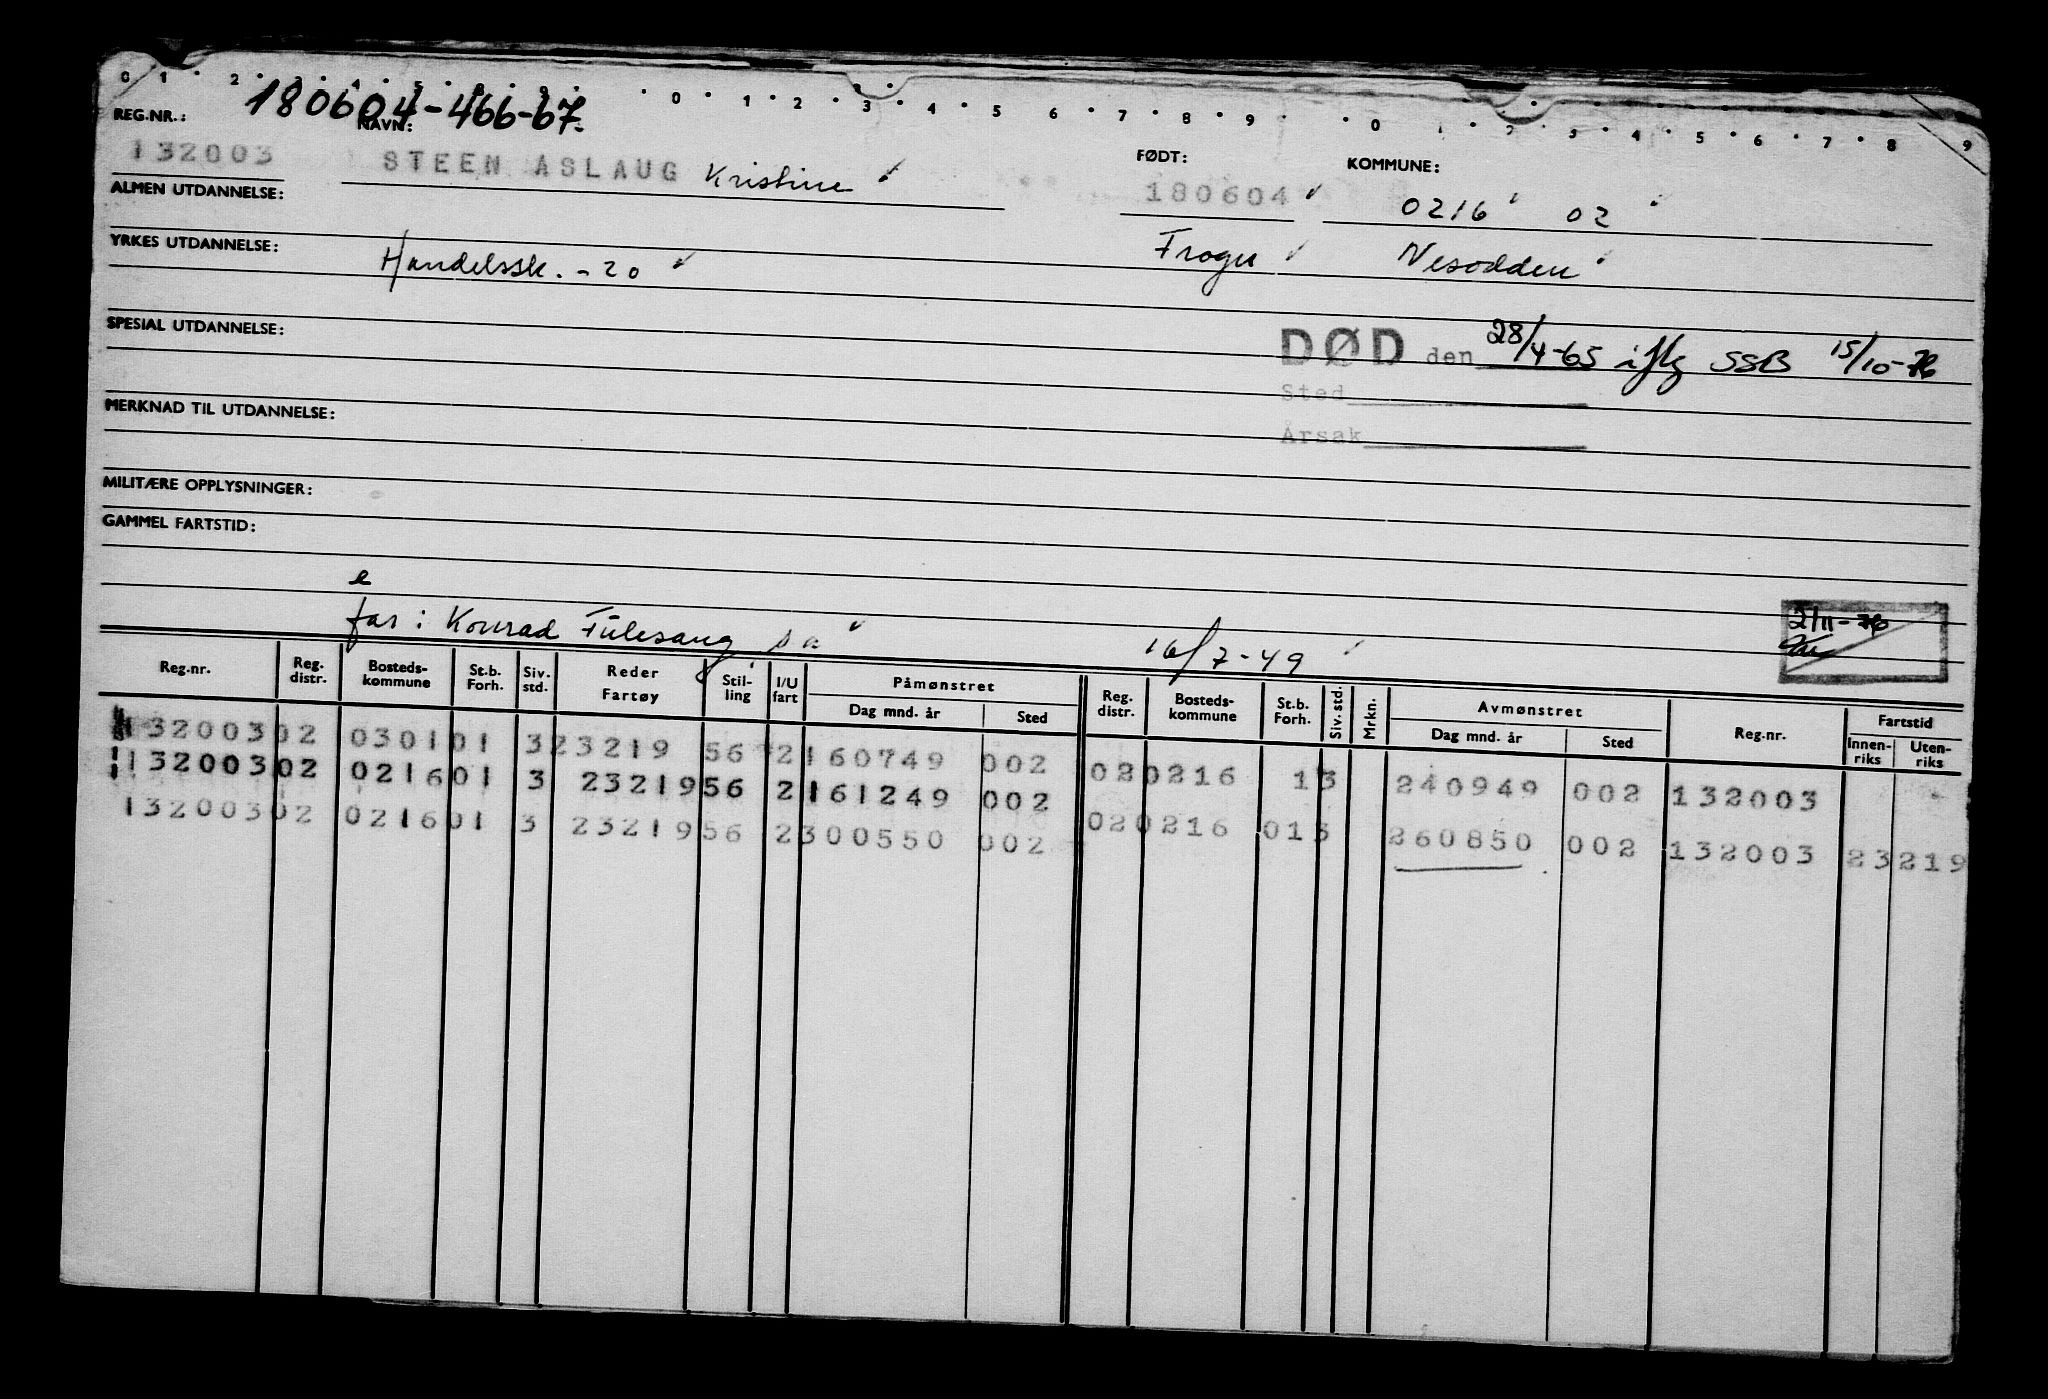 0 · 1 · 2 · 3 · 4 · 5 · 8 · 9 · 0 · 1 · 2 · 3 · 4 · 5 6 · 7 · 8 · 9 · · 0 1 · 2 · 3 · 4 · 5 · 6 · 7 · 8 9
180604-466-67.
REG.NR.: NAVN: FØDT: KOMMUNE:
132003 STEEN ASLAUG Kristine 180604 0216 02
ALMEN UTDANNELSE:
YRKES UTDANNELSE: Handelssk. -20 Frogn Nesodden
SPESIAL UTDANNELSE: DØD den 28/4-65 iflg SSB 15/10-76
Sted
MERKNAD TIL UTDANNELSE:
Årsak
MILITÆRE OPPLYSNINGER:
GAMMEL FARTSTID:
e
far: Konrad Fulesang sa 16/7-49
2/11-76
Reg.nr. Reg. distr. Bosteds-kommune St.b. Forh. Siv. std. Reder Fartøy Stil-ling I/U fart Påmønstret Dag mnd. år Sted Reg. distr. Bosteds-kommune St.b. Forh. Siv. std. Mrkn. Avmønstret Dag mnd. år Sted Reg.nr. Fartstid Innen-riks Uten-riks
132003 02 0301 01 3 23219 56 2 160749 002 02 0216 1 3 240949 002 132003
132003 02 0216 01 3 23219 56 2 161249 002
132003 02 0216 01 3 23219 56 2 300550 002 02 0216 01 3 260850 002 132003 23219